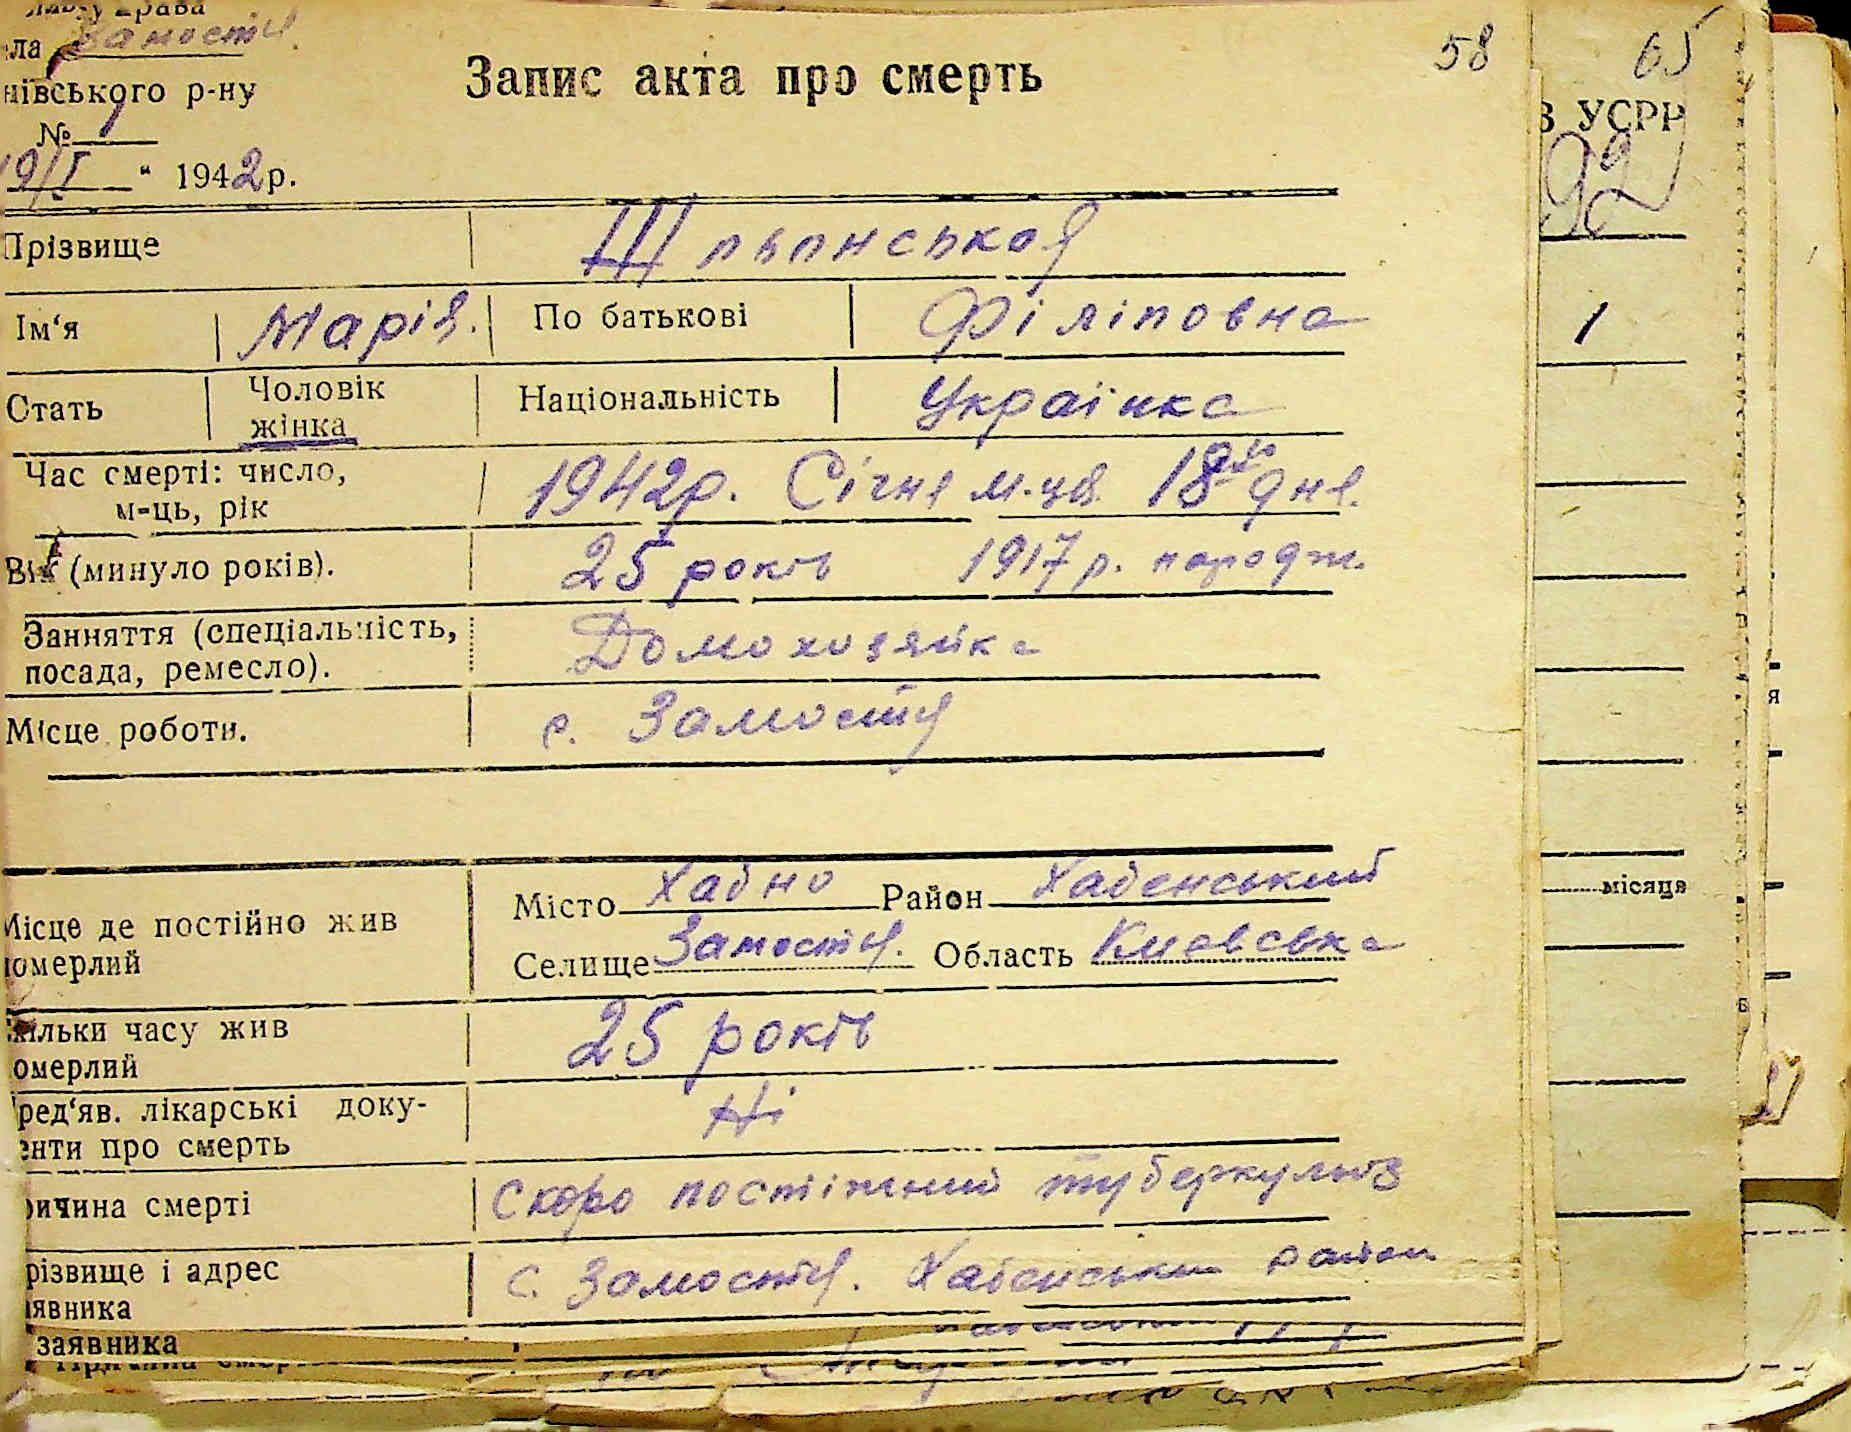 ла Замостя
нівського р-ну
№ 9
19/I " 1942 р.
Запис акта про смерть
58
65
В УСРР
92
Прізвище
Ім'я Марія. По батькові Філіповна
1
Стать Чоловік жінка Національність Українка
Час смерті: число, м-ць, рік 1942р. Січня м-ця 18го дня.
Вік (минуло років). 25 років 1917 р. народж.
Заняття (спеціальність, посада, ремесло). Домохозяйка
Місце роботи. с. Замостя
Місце де постійно жив
померлий
Місто Хабно Район Хабенський
Селище Замостя. Область Киевська
місяця
кільки часу жив
омерлий 25 років
ред'яв. лікарські доку-
енти про смерть Ні
ричина смерті Скоро постіжний туберкульоз
різвище і адрес
явника с. Замостя. Хабенський район
заявника